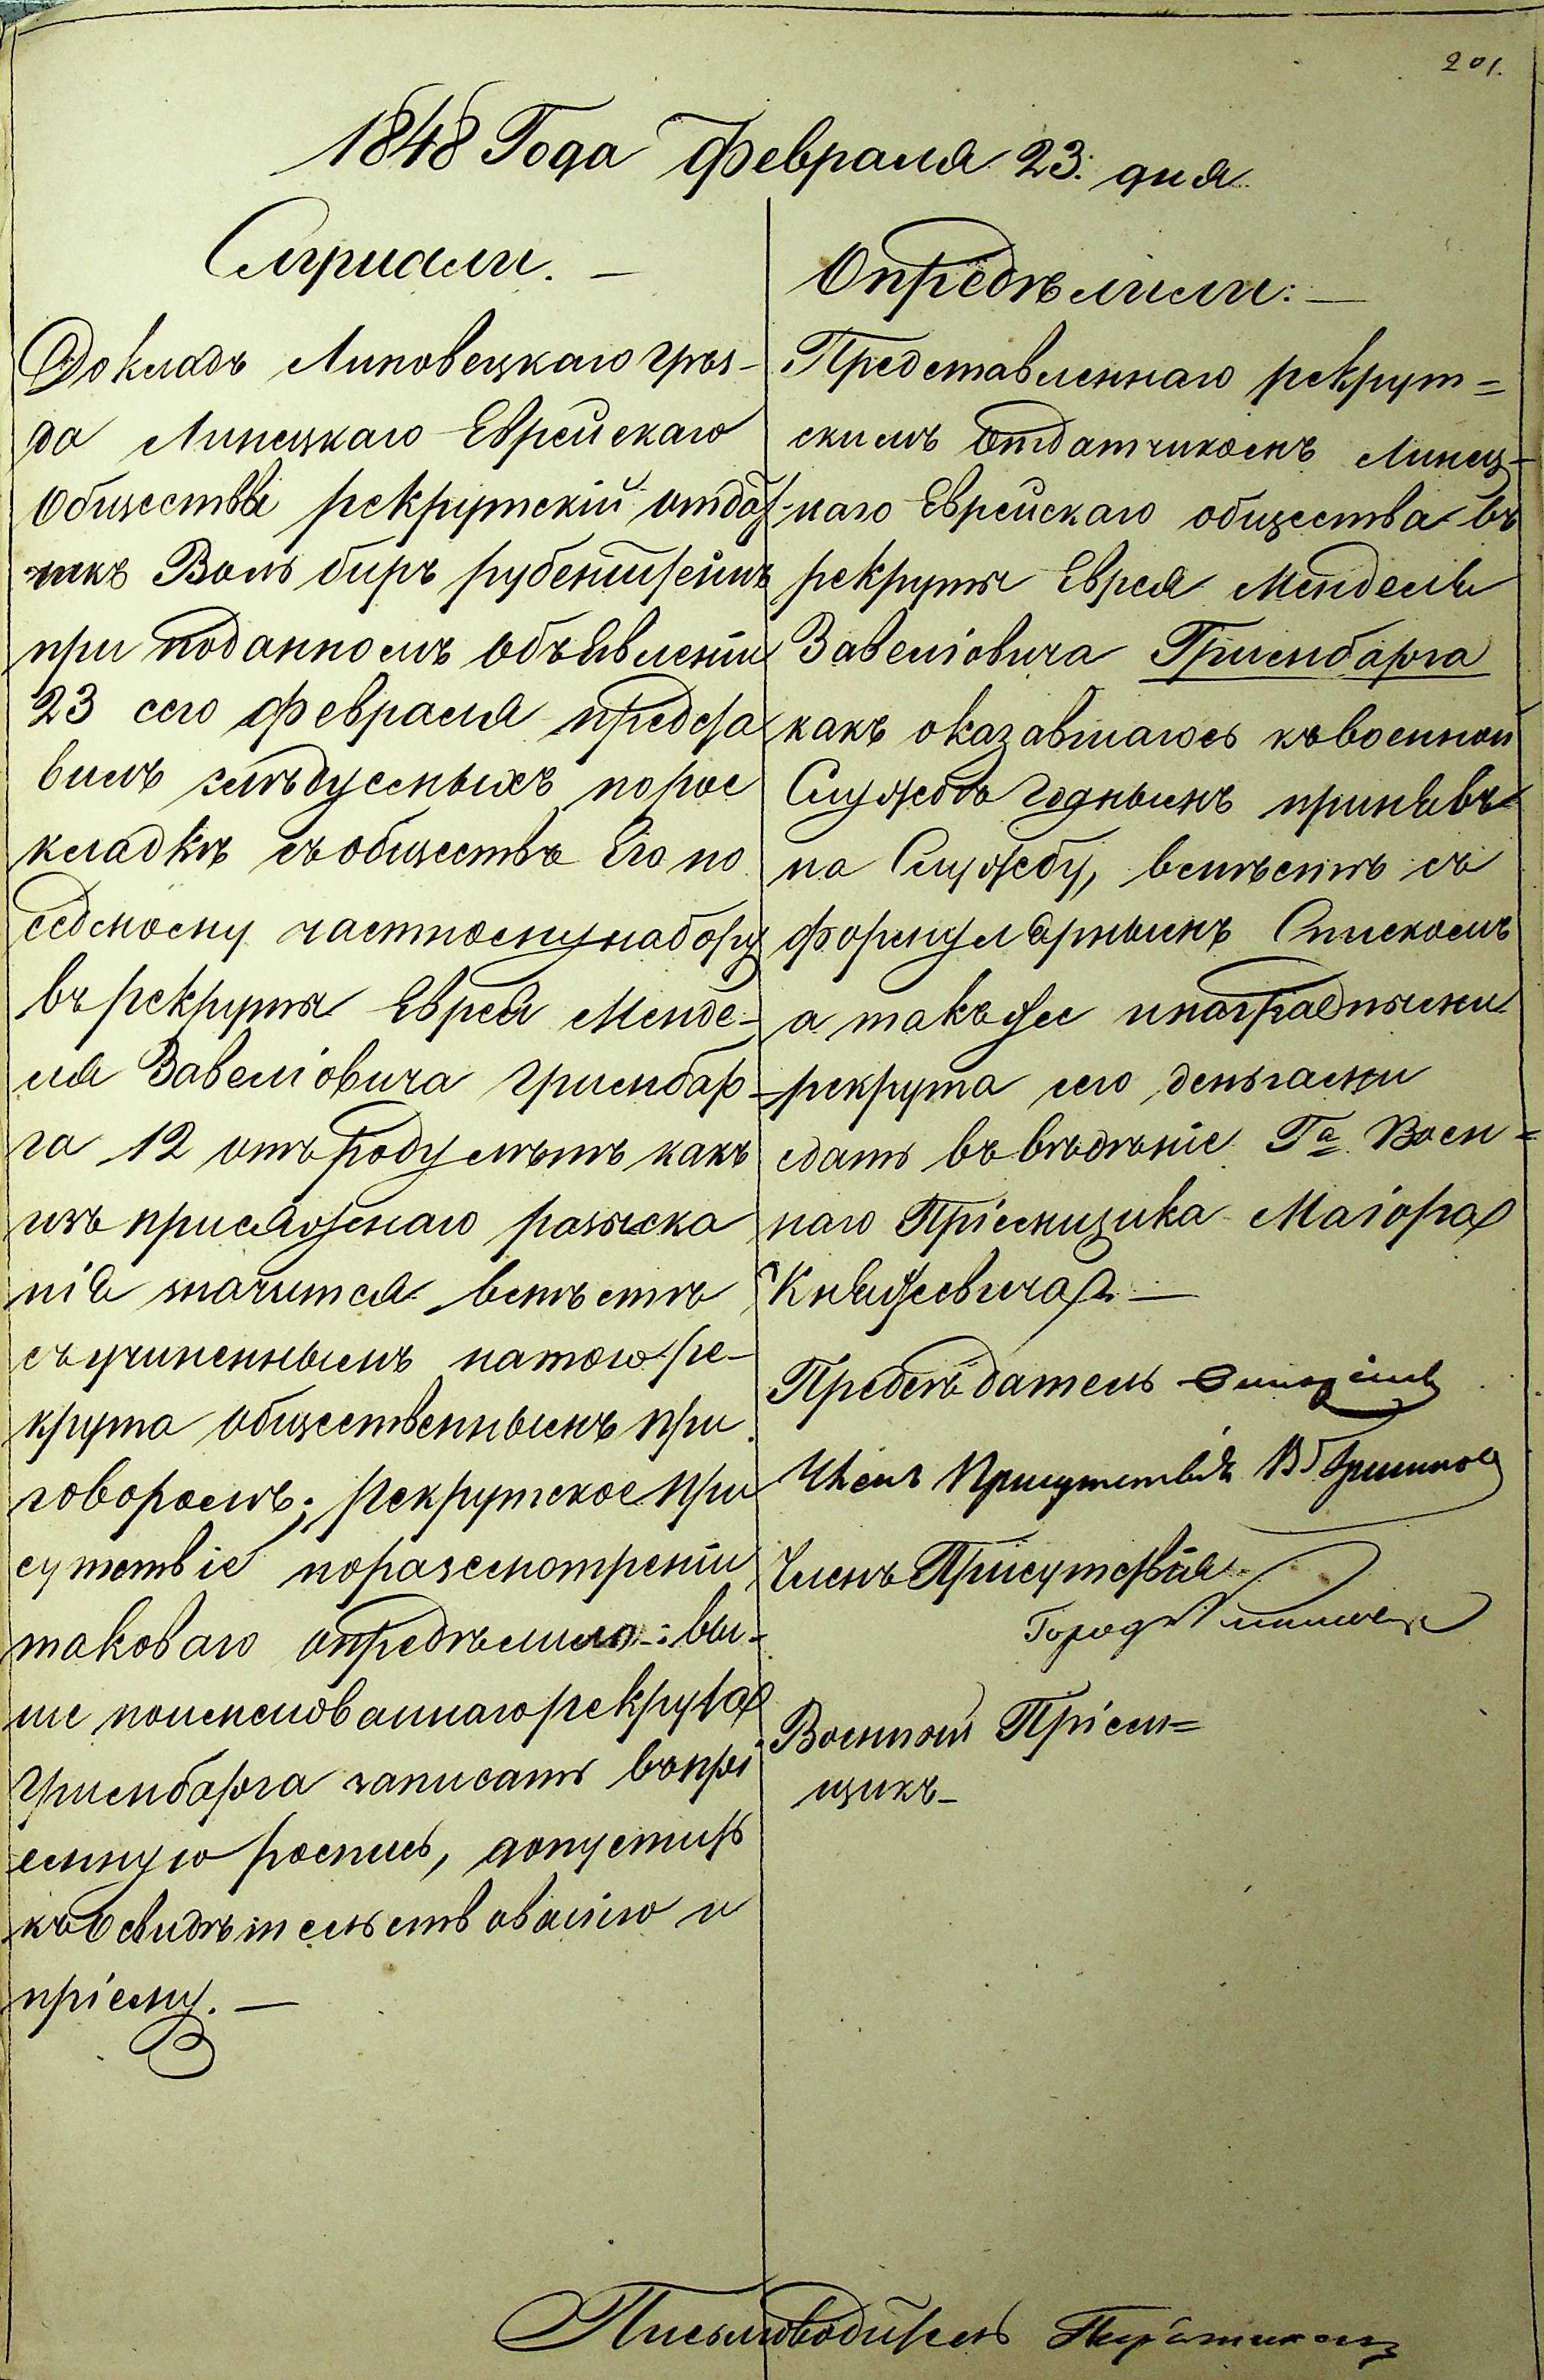 201.
1848 Года Февраля 23: дня
Слушали. —
Докладъ Липовецкаго уѣз-
да Линецкаго Еврейскаго
Общества рекрутскій отдат
чикъ Воль биръ рубенштейнъ
при поданномъ объявленіи
23 сего февраля предста
вилъ слѣдуемыхъ по рос
кладкѣ съ обществъ Его по
седмому частному набору
въ рекруты Еврея Менде-
ля Завеліовича Гримбар-
га 12 отъ роду лѣтъ какъ
изъ присяжнаго розыска
нія значится вмѣстѣ
съ учиненнымъ на того ре-
крута общественнымъ при
говоромъ; рекрутское При
сутствіе по разсмотреніи
таковаго опредѣлило: вы-
ше поименованнаго рекрута
Гримбарга записать въ прі
емную роспись, допустить
къ Освидѣтельствованію и
пріему. —
Опредѣлили: —
Представленнаго рекрут=
скимъ Отдатчикомъ Линец-
каго Еврейскаго общества въ
рекруты Еврея Менделя
Завеліовича Гримбарга
какъ оказавшагось къ военной
Службѣ годнымъ принявъ
на Службу, вмѣстѣ съ
формулярнымъ Спискомъ
а такъ же и наградными
рекрута сего деньгами
сдать въ вѣдѣніе Га Воен=
наго Пріемщика Маіора
Княжевича. —
Предсѣдатель
Членъ Присутствія
Членъ Присутствія
Город
Военный Пріем=
щикъ —
Письмоводитель